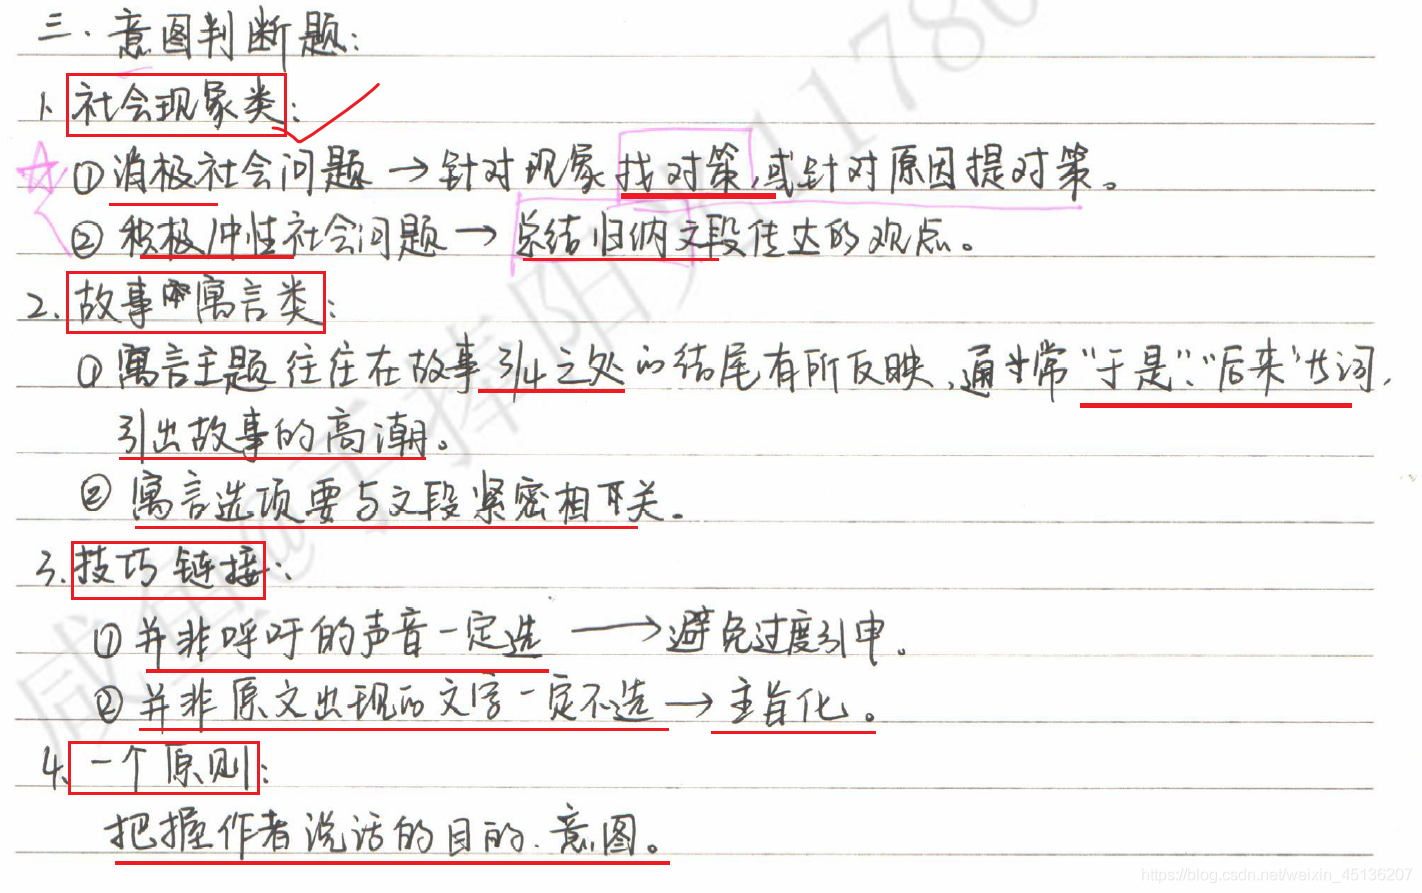 三.意图判断题:
1.社会现象类:
①消极社会问题→针对现象找对策,或针对原因提对策。
②积极/中性社会问题→总结归纳文段传达的观点。
2.故事寓言类:
①寓言主题往往在故事3/4之处的结尾有所反映,通常"于是"、"后来"代词,
引出故事的高潮。
②寓言选项要与文段紧密相关。
3.技巧链接:
①并非呼吁的声音一定选→避免过度引申。
②并非原文出现的文字一定不选→主旨化。
4.一个原则:
把握作者说话的目的.意图。
https://blog.csdn.net/weixin_45136207